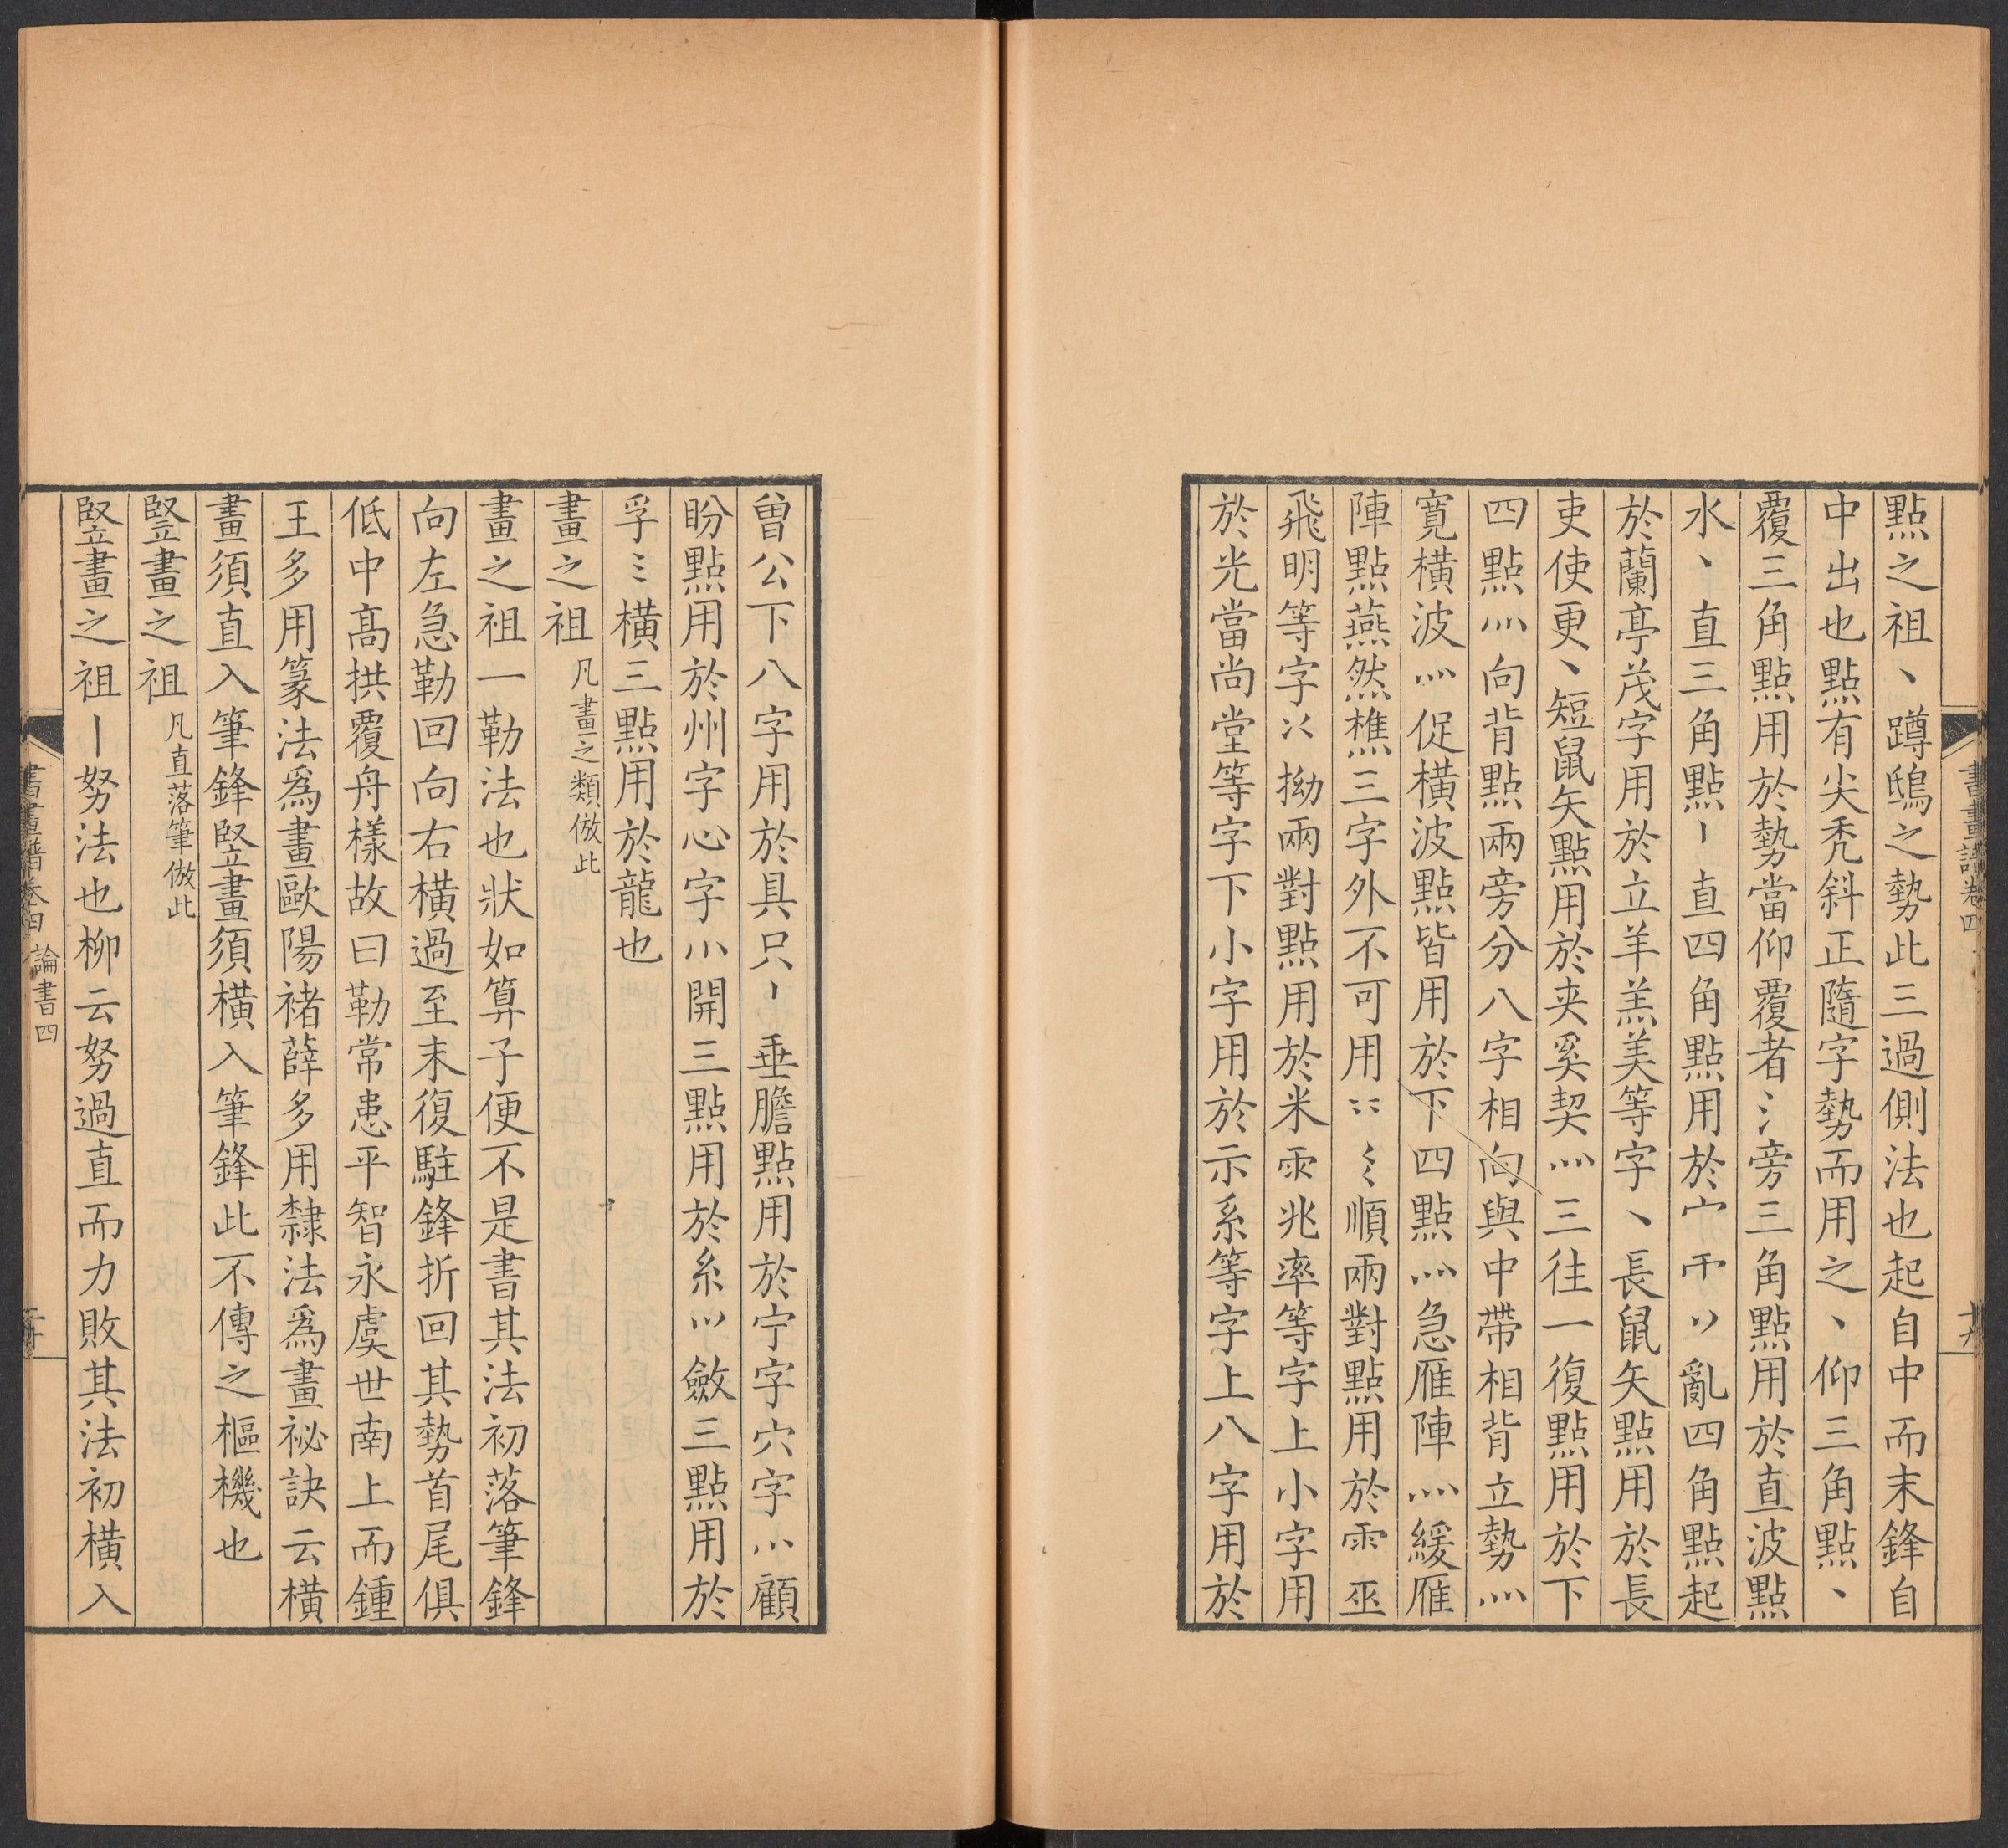 書畫譜卷四
十九
點之祖丶蹲鴟之勢此三過側法也起自中而末鋒自
中出也點有尖秃斜正隨字勢而用之丶仰三角點丶
覆三角點用於勢當仰覆者氵旁三角點用於直波點
水丶直三角點丨直四角點用於宀帀丷亂四角點起
於蘭亭茂字用於立羊羔美等字丶長鼠矢點用於長
吏使更丶短鼠矢點用於夾奚契灬三往一復點用於下
四點灬向背點兩旁分八字相向與中帶相背立勢灬
寛横波灬促横波點皆用於下四點灬急雁陣灬緩雁
陣點燕然樵三字外不可用順兩對點用於雨巫
飛明等字拗兩對點用於米雨兆率等字上小字用
於光當尚堂等字下小字用於示系等字上八字用於
曾公下八字用於具只丶垂膽點用於宁字穴字顧
盼點用於州字心字小開三點用於糸斂三點用於
孚横三點用於龍也
畫之祖凡畫之類倣此
畫之祖一勒法也狀如算子便不是書其法初落筆鋒
向左急勒回向右横過至末復駐鋒折回其勢首尾俱
低中髙拱覆舟樣故曰勒常患平智永虞世南上而鍾
王多用篆法爲畫歐陽褚薛多用隸法爲畫祕訣云横
畫須直入筆鋒竪畫須横入筆鋒此不傳之樞機也
竪畫之祖凡直落筆倣此
竪畫之祖丨努法也柳云努過直而力敗其法初横入
書畫譜卷四 論書四
二十